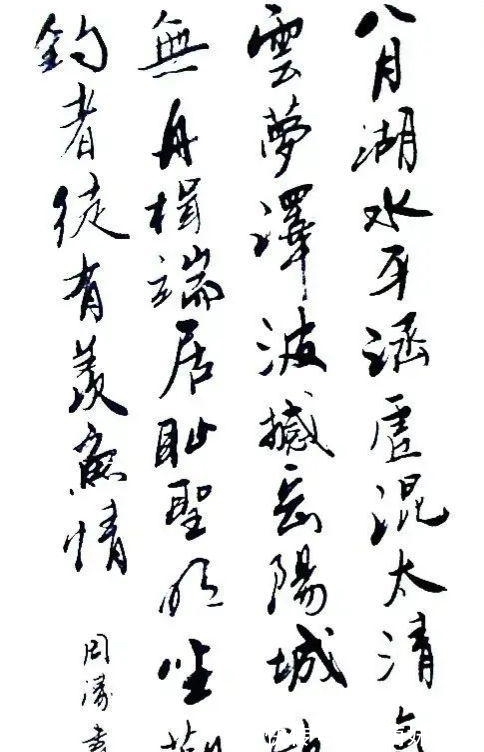 八月湖水平涵虛混太清
雲夢澤波撼岳陽城
無舟楫端居耻聖明坐
釣者徒有羡魚情
周